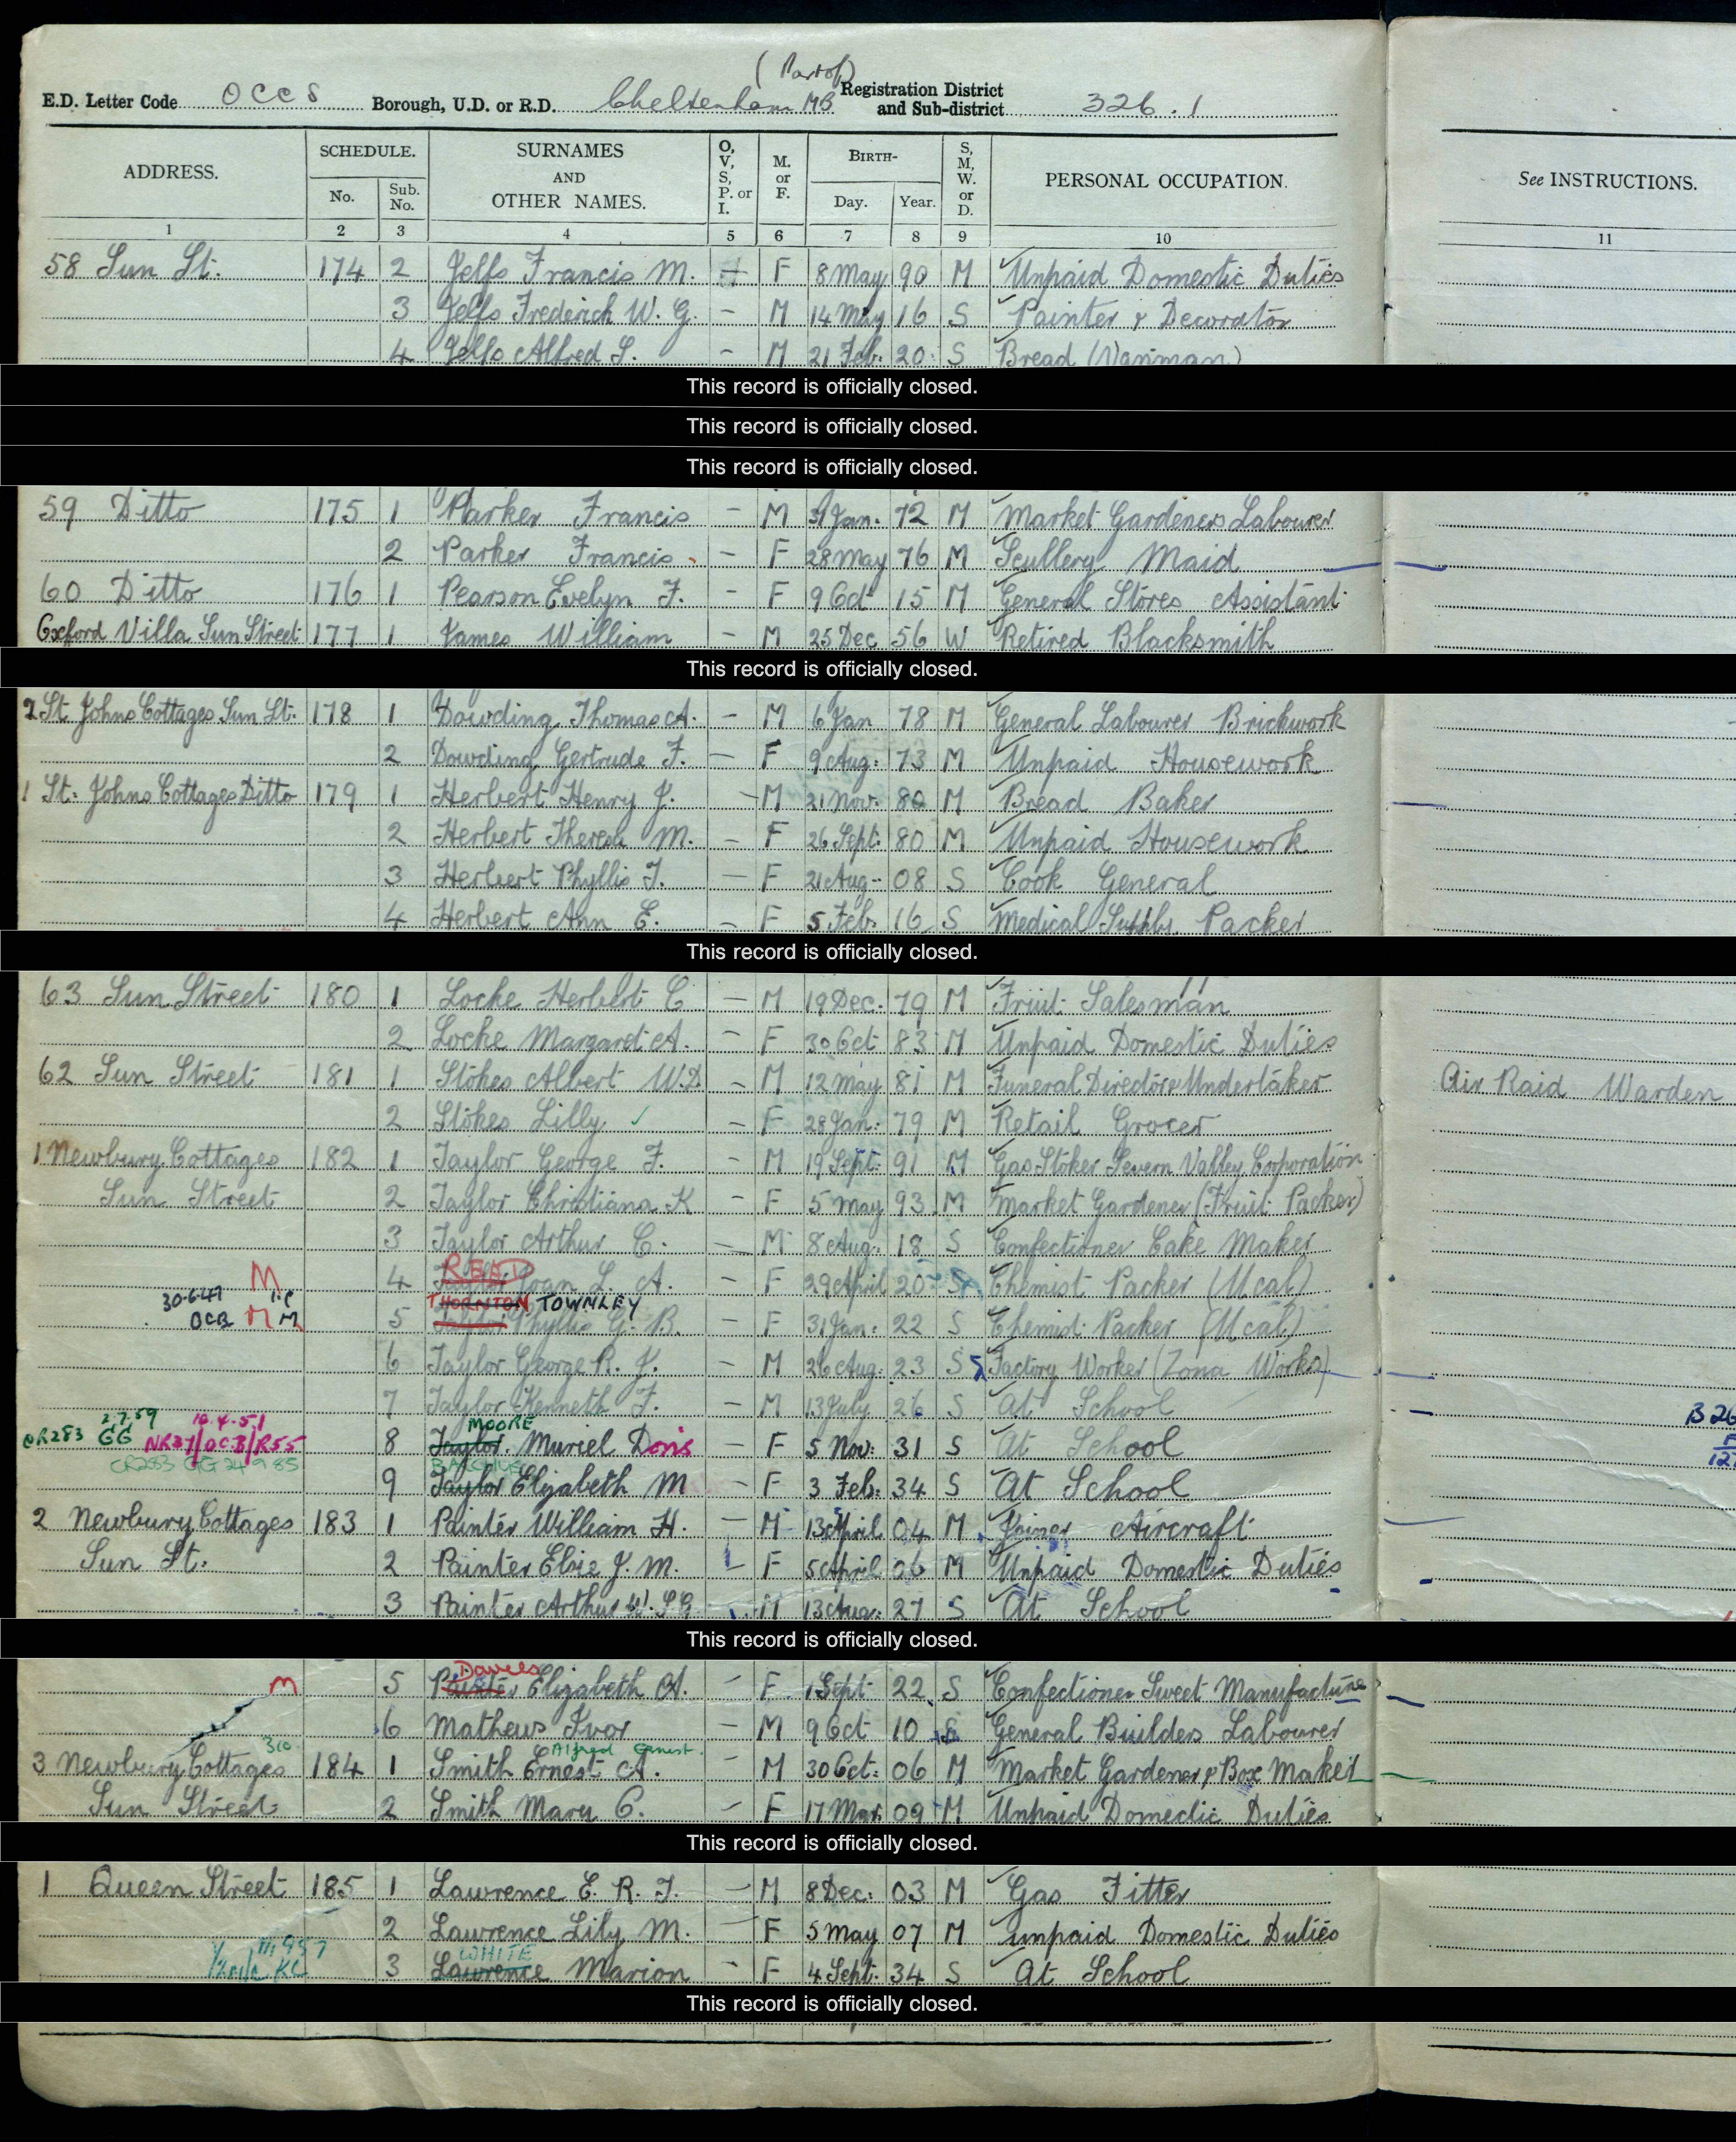 (Part of)
E.D. Letter Code OCCS Borough, U.D. or R.D. Cheltenham MB Registration District and Sub-district 326.1
ADDRESS. SCHEDULE. No. Sub. No. SURNAMES AND OTHER NAMES. O, V, S, P. or I. M. or F. BIRTH- Day. Year. S, M, W. or D. PERSONAL OCCUPATION. See INSTRUCTIONS.
1 2 3 4 5 6 7 8 9 10 11
58 Sun St. 174 2 Jelfs Francis M. F 8 May 90 M Unpaid Domestic Duties
3 Jelfs Frederick W. G. - M 14 May 16 S Painter & Decorator
4 Jelfs Alfred S. - M 21 Feb. 20 S Bread (Vanman)
This record is officially closed.
This record is officially closed.
This record is officially closed.
59 Ditto 175 1 Parker Francis - M 31 Jan. 72 M Market Gardeners Labourer
2 Parker Francis - F 28 May 76 M Scullery Maid
60 Ditto 176 1 Pearson Evelyn F. - F 9 Oct 15 M General Stores Assistant
Oxford Villa Sun Street 177 1 James William - M 25 Dec 56 W Retired Blacksmith
This record is officially closed.
2 St Johns Cottages Sun St. 178 1 Dowding Thomas A. - M 6 Jan 78 M General Labourer Brickwork
2 Dowding Gertrude F. - F 9 Aug: 73 M Unpaid Housework
1 St. Johns Cottages Ditto 179 1 Herbert Henry J. - M 21 Nov. 80 M Bread Baker
2 Herbert Theresa M. - F 26 Sept: 80 M Unpaid Housework
3 Herbert Phyllis F. - F 21 Aug 08 S Cook General
4 Herbert Ann E. - F 5 Feb. 16 S Medical Supply Packer
This record is officially closed.
63 Sun Street 180 1 Locke Herbert C - M 19 Dec. 79 M Fruit Salesman
2 Locke Margaret A. - F 30 Oct 83 M Unpaid Domestic Duties
62 Sun Street 181 1 Stokes Albert W.D. - M 12 May 81 M Funeral Director Undertaker Air Raid Warden
2 Stokes Lilly - F 28 Jan: 79 M Retail Grocer
1 Newbury Cottages 182 1 Taylor George F. - M 19 Sept: 91 M Gas Stoker Severn Valley Corporation
Sun Street 2 Taylor Christiana K - F 5 May 93 M Market Gardener (Fruit Packer)
3 Taylor Arthur C. - M 8 Aug: 18 S Confectioner Cake Maker
READ
M 4 Taylor Joan L. A. - F 29 April 20 S Chemist Packer (Ucal)
30.6.47 THORNTON TOWNLEY
OCB M M 5 Taylor Phyllis G. B. - F 31 Jan: 22 S Chemist Packer (Ucal)
6 Taylor George R. J. - M 26 Aug: 23 S Factory Worker (Zona Works)
7 Taylor Kenneth F. - M 13 July 26 S At School
2.7.59 10.4.51 MOORE B 26
CR283 GG NR37/OCB/R55 8 Taylor. Muriel Doris - F 5 Nov: 31 S At School
CR283 GG 24 9 85
9 Taylor Elizabeth M - F 3 Feb: 34 S At School
2 Newbury Cottages 183 1 Painter William H. - M 13 April 04 M Joiner Aircraft
Sun St. 2 Painter Elsie J. M. - F 5 April 06 M Unpaid Domestic Duties
3 Painter Arthur W. M 13 Aug: 27 S At School
This record is officially closed.
Davies
M 5 Painter Elizabeth A. - F 1 Sept 22 S Confectioner Sweet Manufacture
6 Mathews Ivor - M 9 Oct 10 S General Builders Labourer
310 Alfred Ernest.
3 Newbury Cottages 184 1 Smith Ernest A. - M 30 Oct: 06 M Market Gardener & Box Maker
Sun Street 2 Smith Mary C. - F 17 Mar. 09 M Unpaid Domestic Duties
This record is officially closed.
1 Queen Street 185 1 Lawrence E. R. F. - M 8 Dec: 03 M Gas Fitter
2 Lawrence Lily M. - F 5 May 07 M Unpaid Domestic Duties
WHITE
3 Lawrence Marion - F 4 Sept. 34 S At School
This record is officially closed.